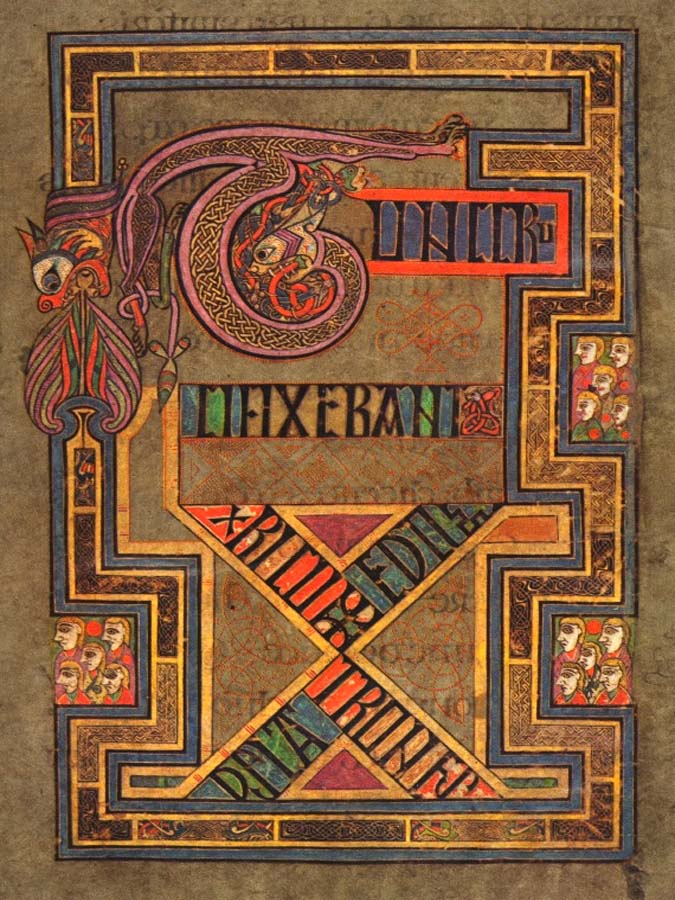 TUNCCRU
CIFIXERANT
XPICUM
EODU
OSLA
TRONES